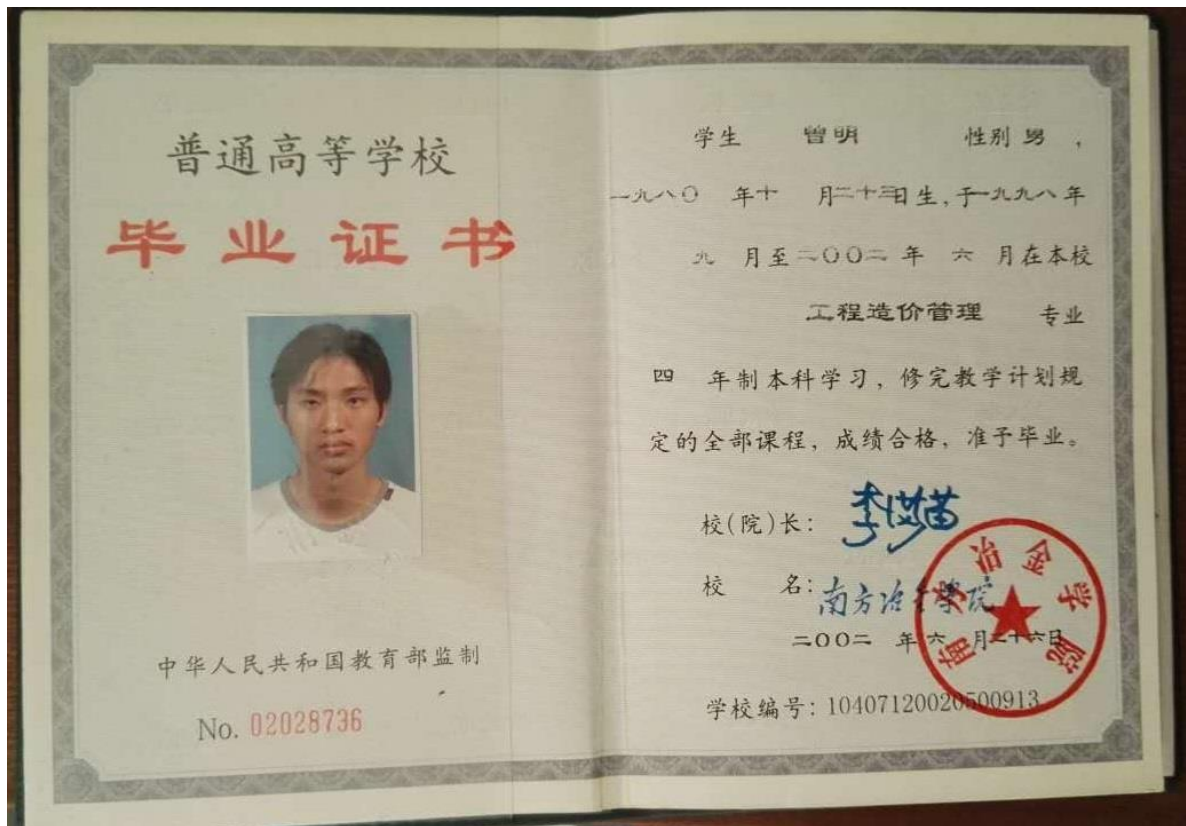 普通高等学校
毕业证书
中华人民共和国教育部监制
No. 02028736
学生 曾明 性别 男，
一九八〇 年十 月二十三日生，于一九九八年
九 月至二〇〇二 年 六 月在本校
工程造价管理 专业
四 年制本科学习，修完教学计划规
定的全部课程，成绩合格，准予毕业。
校(院)长：
校 名：南方冶金学院
二〇〇二 年六 月二十六日
学校编号：10407120020500913
南方冶金学院